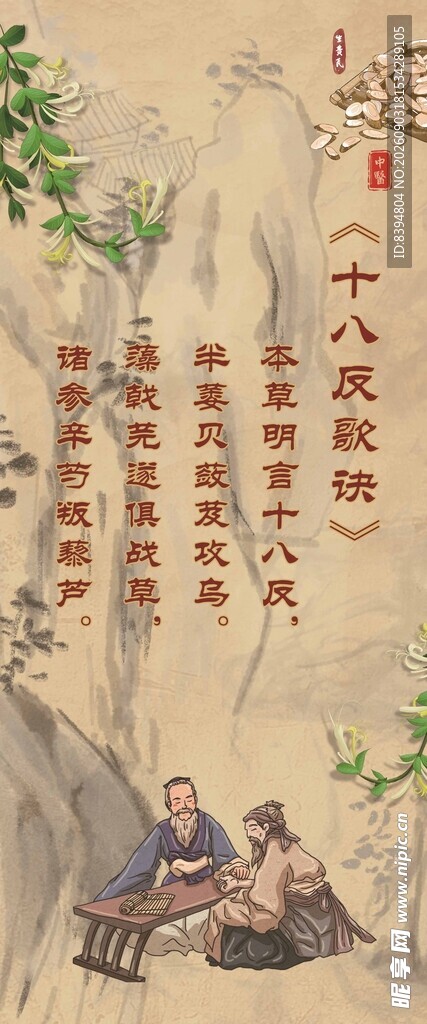 《十八反歌诀》
本草明言十八反，
半蒌贝蔹芨攻乌。
藻戟芫遂俱战草，
诸参辛芍叛藜芦。
中醫
ID:8394804 NO:20260903181534289105
昵享网 www.nipic.cn